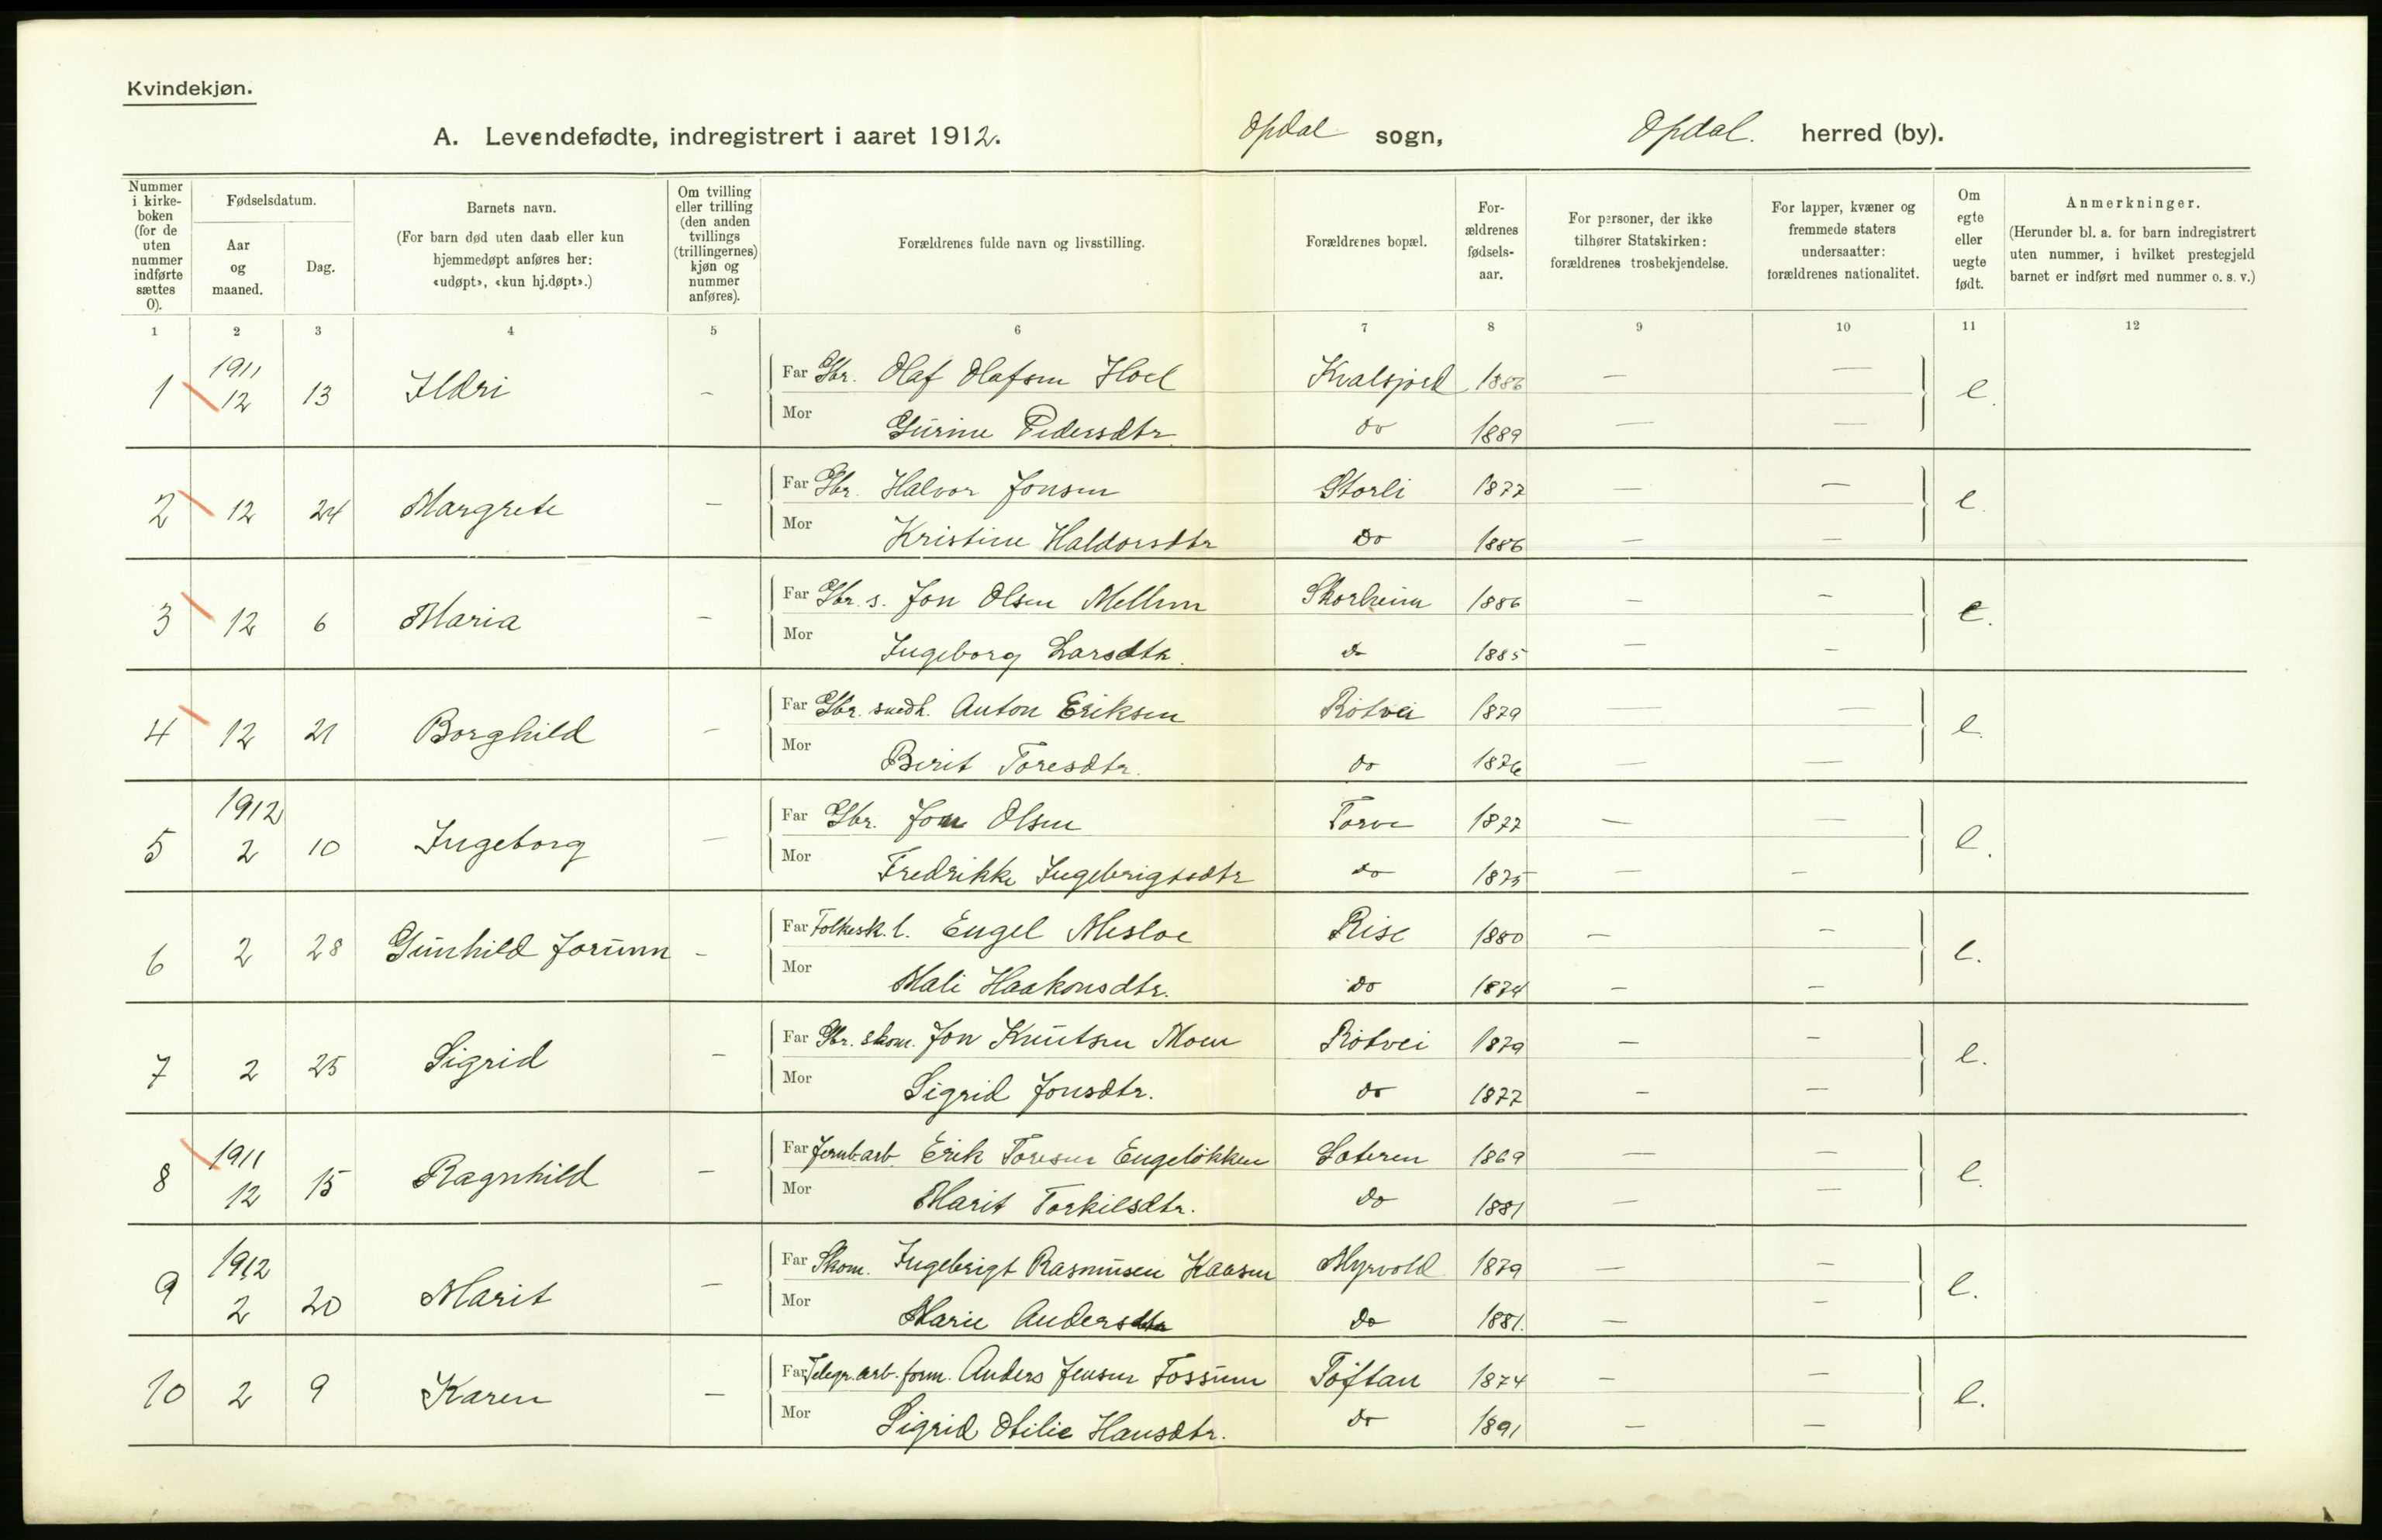 Kvindekjøn.
A. Levendefødte, indregistrert i aaret 1912. Opdal sogn, Opdal. herred (by).
Nummer i kirke-boken (for de uten nummer indførte sættes 0).
Fødselsdatum.
Aar og maaned.
Dag.
Barnets navn.
(For barn død uten daab eller kun hjemmedøpt anføres her: «udøpt», «kun hj.døpt».)
Om tvilling eller trilling (den anden tvillings (trillingernes) kjøn og nummer anføres).
Forældrenes fulde navn og livsstilling.
Forældrenes bopæl.
For-ældrenes fødsels-aar.
For personer, der ikke tilhører Statskirken: forældrenes trosbekjendelse.
For lapper, kvæner og fremmede staters undersaatter: forældrenes nationalitet.
Om egte eller uegte født.
Anmerkninger.
(Herunder bl. a. for barn indregistrert uten nummer, i hvilket prestegjeld barnet er indført med nummer o. s. v.)
1 2 3 4 5 6 7 8 9 10 11 12
1911
1 12 13 Ildri – Far Gbr. Olaf Olafsen Hoel 1886 — — e.
Mor Gurine Pedersdtr. do 1889 — —
2 12 24 Margrete – Far Gbr. Halvor Jonsen Storli 1877 — — e.
Mor Kristine Haldorsdtr do 1886 — —
3 12 6 Maria – Far Gbr. s. Jon Olsen Mellem Skorheim 1886 — — e.
Mor Ingeborg Larsdtr. do 1885 — —
4 12 21 Borghild – Far Gbr. snedk. Anton Eriksen Rotvei 1879 — — e.
Mor Berit Toresdtr. do 1876 — —
1912
5 2 10 Ingeborg – Far Gbr. Jon Olsen Torve 1877 — — e.
Mor Fredrikke Ingebrigtsdtr do 1875 — —
6 2 28 Gunhild Jorunn – Far Folkesk. l. Engel Mesloe Rise 1880 — — e.
Mor Mali Haakonsdtr. do 1874 — —
7 2 25 Sigrid – Far Gbr. skom. Jon Knutsen Moen Rotvei 1879 — — e.
Mor Sigrid Jonsdtr. do 1877 — —
1911
8 12 15 Ragnhild – Far Jernb.arb. Erik Toresen Engeløkken Sæteren 1869 — — e.
Mor Marit Torkilsdtr. do 1881 — —
1912
9 2 20 Marit – Far Skom. Ingebrigt Rasmusen Kaasen Myrvold 1879 — — e.
Mor Marie Andersdtr do 1881. — —
10 2 9 Karen – Far Telegr.arb.form. Anders Jensen Fossum Toftan 1874 — — e.
Mor Sigrid Otilie Hansdtr. do 1891 — —